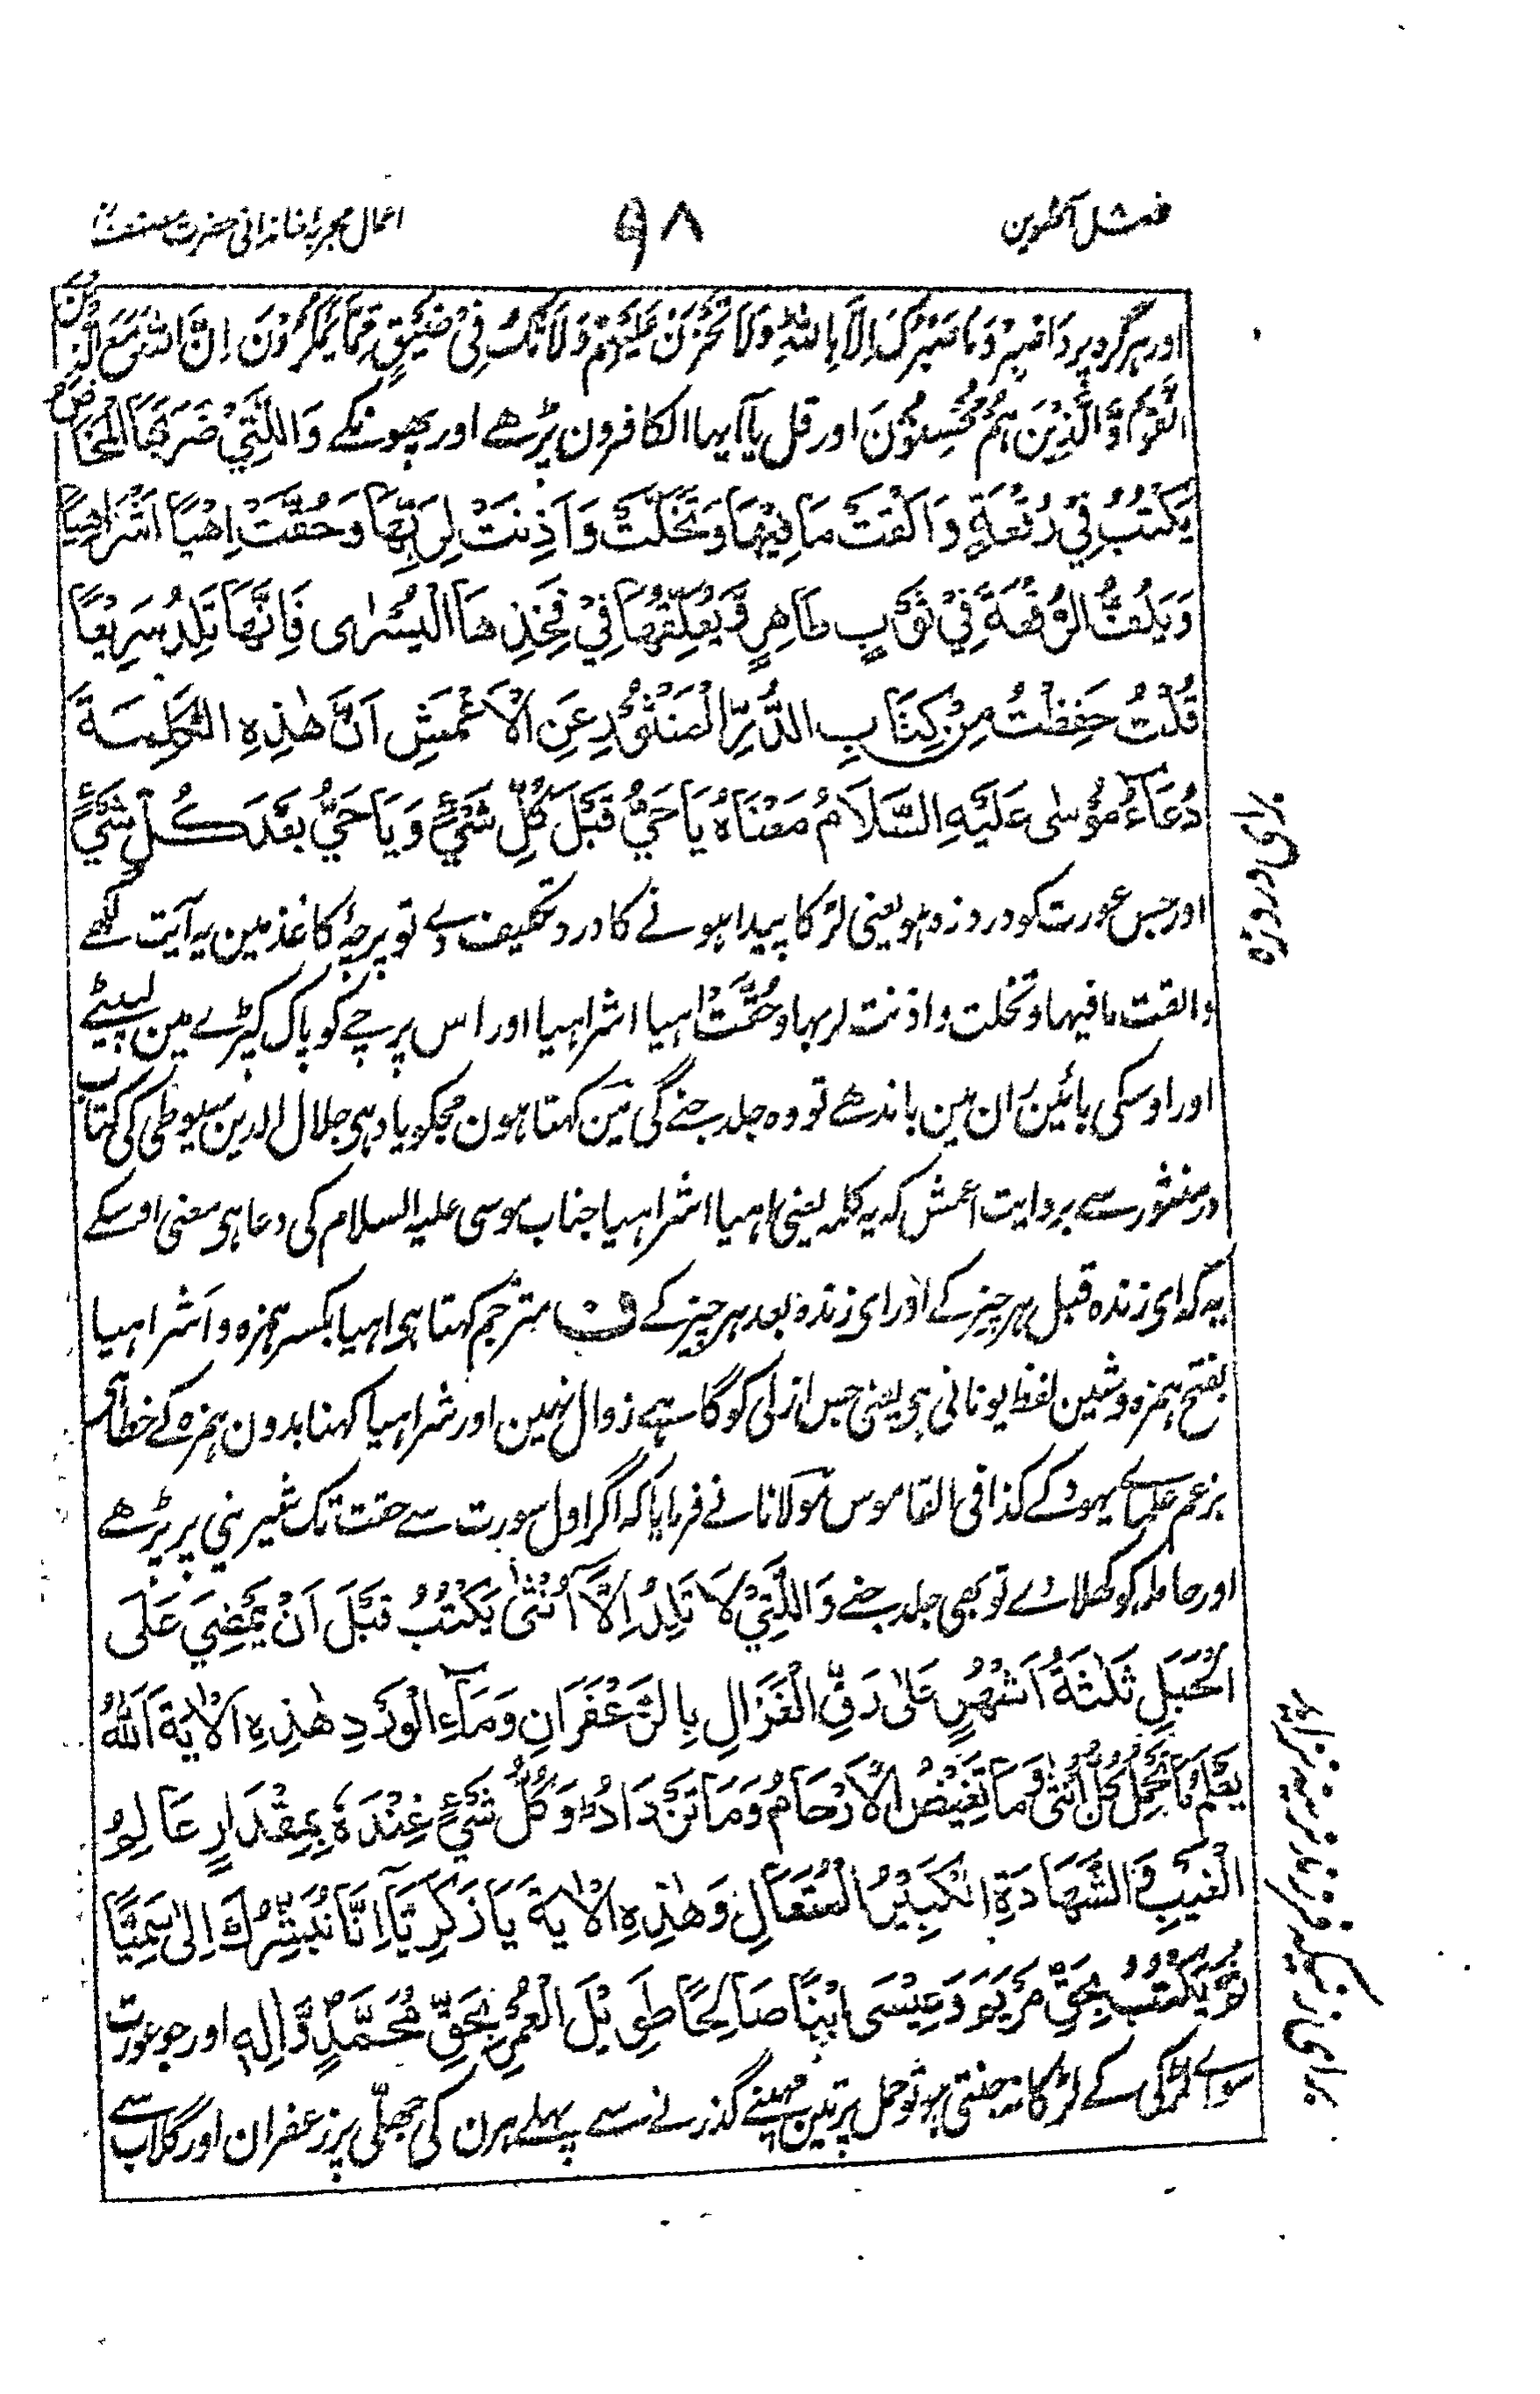 فصل آٹھوین
۹۸
اعمال مجربہ خاندانی حضرت مصنف
اور ہر گرہ پر واصبر وَمَا صَبْرُكَ اِلَّا بِاللهِ وَلَا تَحْزَنْ عَلَيْهِمْ وَلَا تَكُ فِيْ ضَيْقٍ مِّمَّا يَمْكُرُوْنَ اِنَّ اللهَ مَعَ الَّذِيْنَ
اتَّقَوْا وَّالَّذِيْنَ هُمْ مُّحْسِنُوْنَ اور قل یا آیہا الکافرون پڑھے اور پھونکے وَاللَّتِيْ ضَرَبَهَا الْمَخَاضُ
يَكْتُبُ فِيْ رُقْعَةٍ وَاَلْقَتْ مَا فِيْهَا وَتَخَلَّتْ وَاَذِنَتْ لِرَبِّهَا وَحُقَّتْ اِهْيًا اَشْرَاهِيًا
وَيَلُفُّ الرُّقْعَةَ فِيْ ثَوْبٍ طَاهِرٍ وَّيُعَلِّقُهَا فِيْ فَخِذِهَا الْيُسْرٰى فَاِنَّهَا تَلِدُ سَرِيْعًا
قُلْتُ حَفِظْتُ مِنْ كِتَابِ الدُّرِّ الْمَنْثُوْرِ عَنِ الْاَعْمَشِ اَنَّ هٰذِهِ الْكَلِمَةَ
دُعَاءُ مُوْسٰى عَلَيْهِ السَّلَامُ مَعْنَاهُ يَا حَيُّ قَبْلَ كُلِّ شَيْءٍ وَيَا حَيُّ بَعْدَ كُلِّ شَيْءٍ
اور جس عورت کو درد زہ ہو یعنی لڑکا پیدا ہونے کا درد تکلیف دے تو پرچۂ کاغذ مین یہ آیت لکھے
والقت ما فیہا وتخلت واذنت لربہا وحُقَّتْ اہیا اشراہیا اور اس پرچے کو پاک کپڑے مین لپیٹے
اور اوسکی بائین ران مین باندھے تو وہ جلد جنے گی مین کہتا ہون مجکو یاد ہی جلال الدین سیوطی کی کتاب
در منثور سے بروایت اعمش کہ یہ کلمہ یعنی اہیا اشراہیا جناب موسی علیہ السلام کی دعا ہی معنی اوسکے
یہ کہ ای زندہ قبل ہر چیز کے اور ای زندہ بعد ہر چیز کے ف مترجم کہتا ہی اہیا بکسر ہمزہ و اشراہیا
بفتح ہمزہ و شین لفظ یونانی ہی یعنی جس ازلی کو گا ہے زوال نہین اور شراہیا کہنا بدون ہمزہ کے خطا ہی
بزعم علمائے یہود کے کذا فی القاموس مولانا نے فرمایا کہ اگر اول سورت سے حقت تک شیرینی پر پڑھے
اور حاملہ کو کھلاوے تو بھی جلد جنے وَاللَّتِيْ لَا تَلِدُ اِلَّا اُنْثٰى يَكْتُبُ قَبْلَ اَنْ يَّمْضِيَ عَلَى
الْحَبَلِ ثَلٰثَةُ اَشْهُرٍ عَلٰى رَقِّ الْغَزَالِ بِالزَّعْفَرَانِ وَمَاءِ الْوَرْدِ هٰذِهِ الْاٰيَةَ اَللّٰهُ
يَعْلَمُ مَا تَحْمِلُ كُلُّ اُنْثٰى وَمَا تَغِيْضُ الْاَرْحَامُ وَمَا تَزْدَادُ وَكُلُّ شَيْءٍ عِنْدَهٗ بِمِقْدَارٍ عَالِمُ
الْغَيْبِ وَالشَّهَادَةِ الْكَبِيْرُ الْمُتَعَالِ وَهٰذِهِ الْاٰيَةَ يَا زَكَرِيَّا اِنَّا نُبَشِّرُكَ اِلٰى سَمِيًّا
ثُمَّ يَكْتُبُ بِحَقِّ مَرْيَمَ وَعِيْسَى ابْنًا صَالِحًا طَوِيْلَ الْعُمُرِ بِحَقِّ مُحَمَّدٍ وَّاٰلِهٖ اور جو عورت
سواے لڑکی کے لڑکا نہ جنتی ہو تو حمل پر تین مہینے گذرنے سے پہلے ہرن کی جھلّی پر زعفران اور گلاب سے
برای درد زہ
برای زنیکہ فرزند نرینہ نزاید